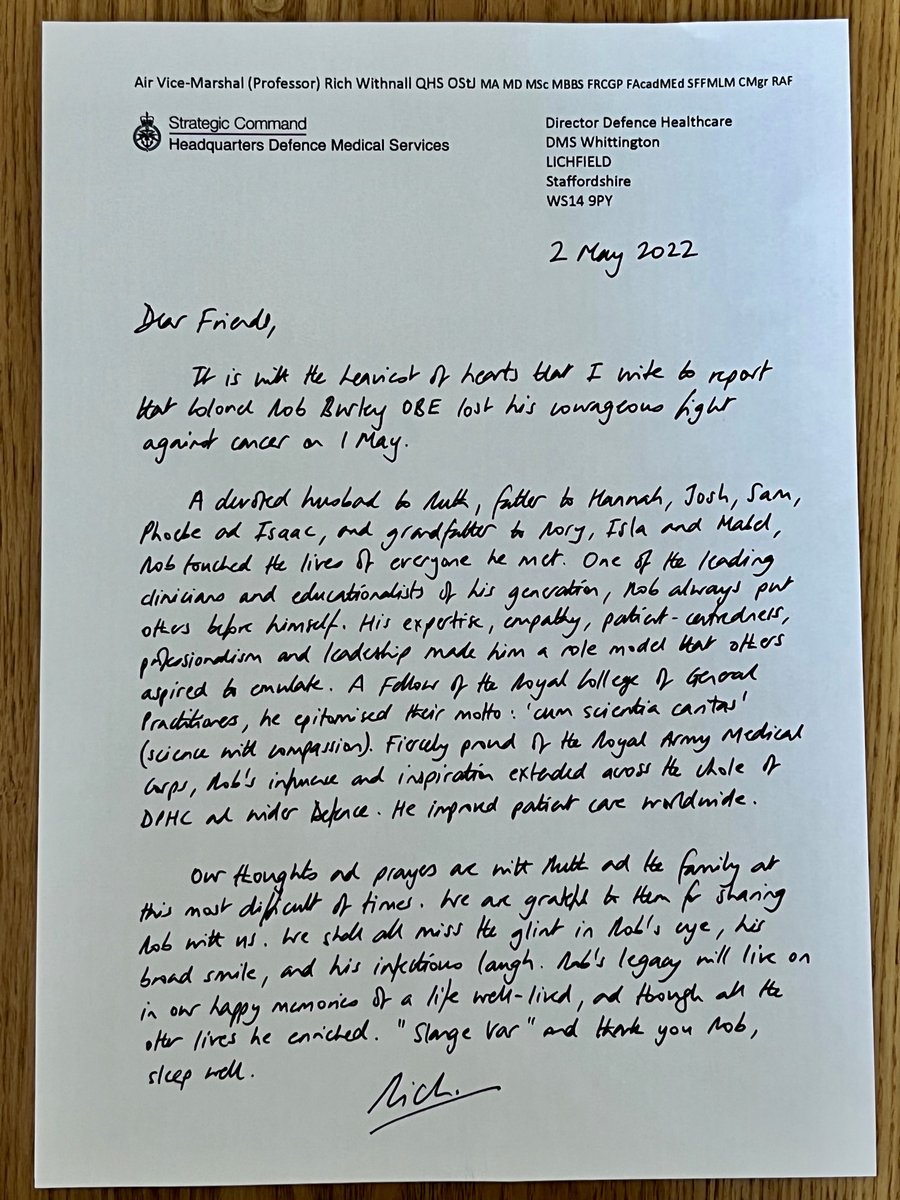 Air Vice-Marshal (Professor) Rich Withnall QHS OStJ MA MD MSc MBBS FRCGP FAcadMEd SFFMLM CMgr RAF
Strategic Command
Headquarters Defence Medical Services
Director Defence Healthcare
DMS Whittington
LICHFIELD
Staffordshire
WS14 9PY
2 May 2022
Dear Friends,
It is with the heaviest of hearts that I write to report
that Colonel Rob Burley OBE lost his courageous fight
against cancer on 1 May.
A devoted husband to Ruth, father to Hannah, Josh, Sam,
Phoebe ad Isaac, and grandfather to Rory, Isla and Mabel,
Rob touched the lives of everyone he met. One of the leading
clinicians and educationalists of his generation, Rob always put
others before himself. His expertise, empathy, patient-centredness,
professionalism and leadership made him a role model that others
aspired to emulate. A Fellow of the Royal College of General
Practitioners, he epitomised their motto: 'cum scientia caritas'
(science with compassion). Fiercely proud of the Royal Army Medical
Corps, Rob's influence and inspiration extended across the whole of
DPHC ad wider Defence. He improved patient care worldwide.
Our thoughts ad prayers are with Ruth ad the family at
this most difficult of times. We are grateful to them for sharing
Rob with us. We shall all miss the glint in Rob's eye, his
broad smile, and his infectious laugh. Rob's legacy will live on
in our happy memories of a life well-lived, ad through all the
other lives he enriched. "Slange Var" and thank you Rob,
sleep well.
Rich.